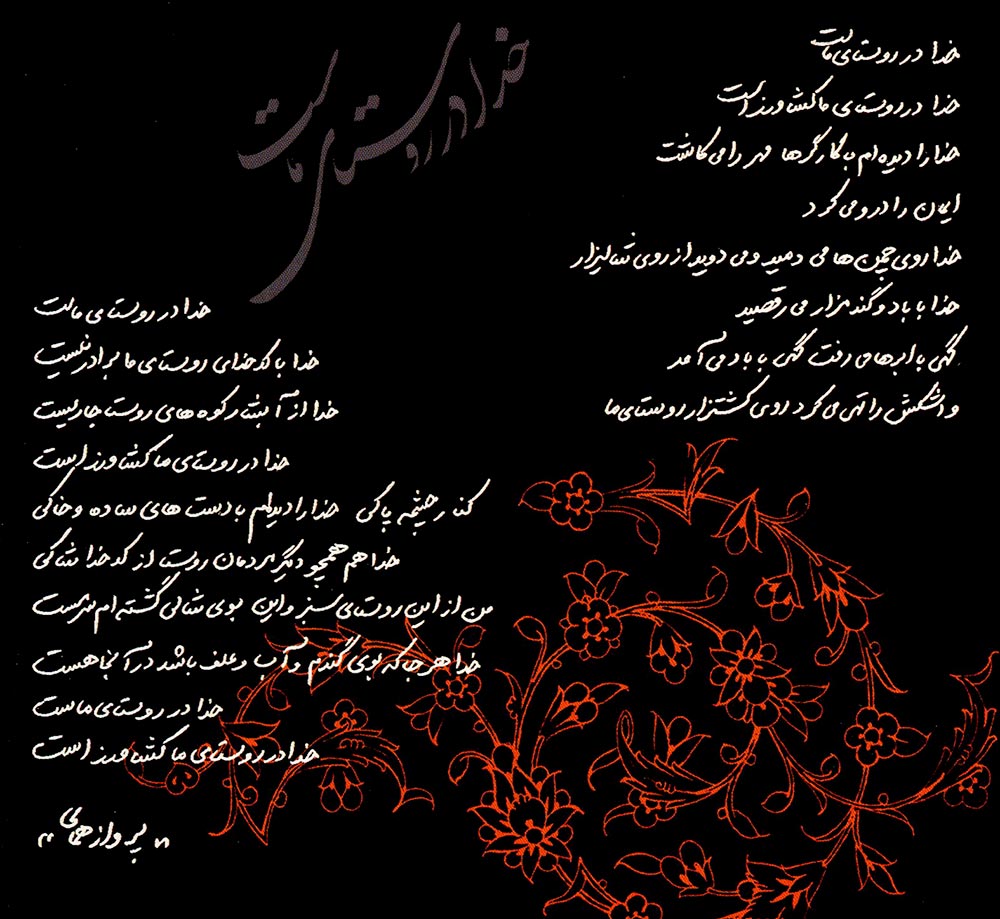 خدا در روستای ماست
خدا در روستای ماست
خدا در روستای ما کشاورز است
خدا را دیده‌ام با کارگرها مهر را می کاشت
ایمان را درو می کرد
خدا روی چمن ها می دمید و می دوید از روی شالیزار
خدا با باد و گندمزار می رقصید
گهی با ابرها می رفت گهی با باد می آمد
و اشکش را تهی می کرد روی کشتزار روستای ما
خدا در روستای ماست
خدا با کدخدای روستای ما برادر نیست
خدا از آبشار کوه های روستا جاریست
خدا در روستای ما کشاورز است
کنار چشمه پاکی خدا را دیده‌ام با دست های ساده و خاکی
خدا هم همچو دیگر مردمان روستا از کدخدا شاکی
من از این روستای سبز و این بوی شالی گشته ام سرمست
خدا هر جا که بوی گندم و آب و علف باشد در آنجا هست
خدا در روستای ماست
خدا در روستای ما کشاورز است
"پرواز همای"